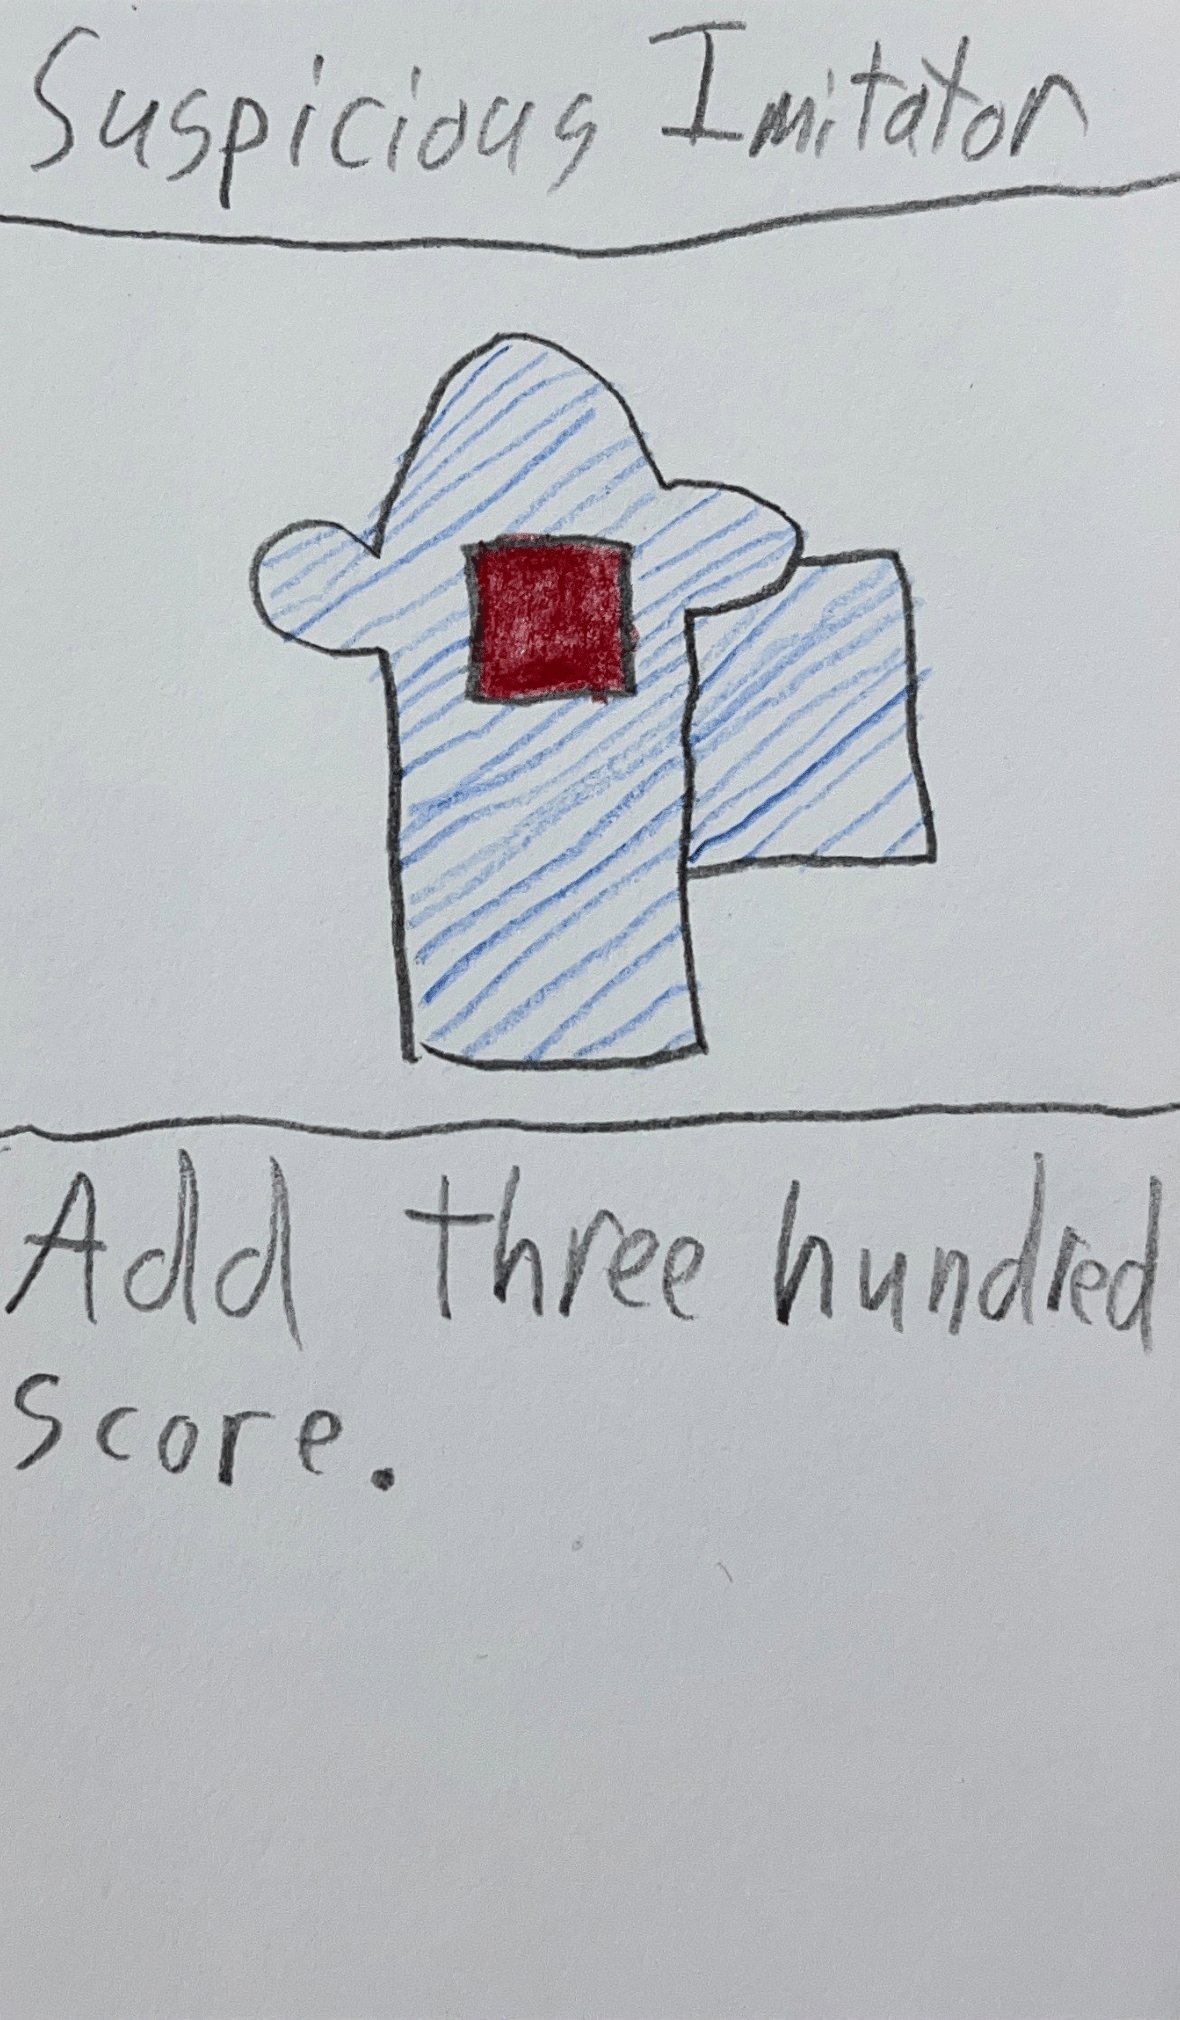 Suspicious Imitator
Add three hundred
score.